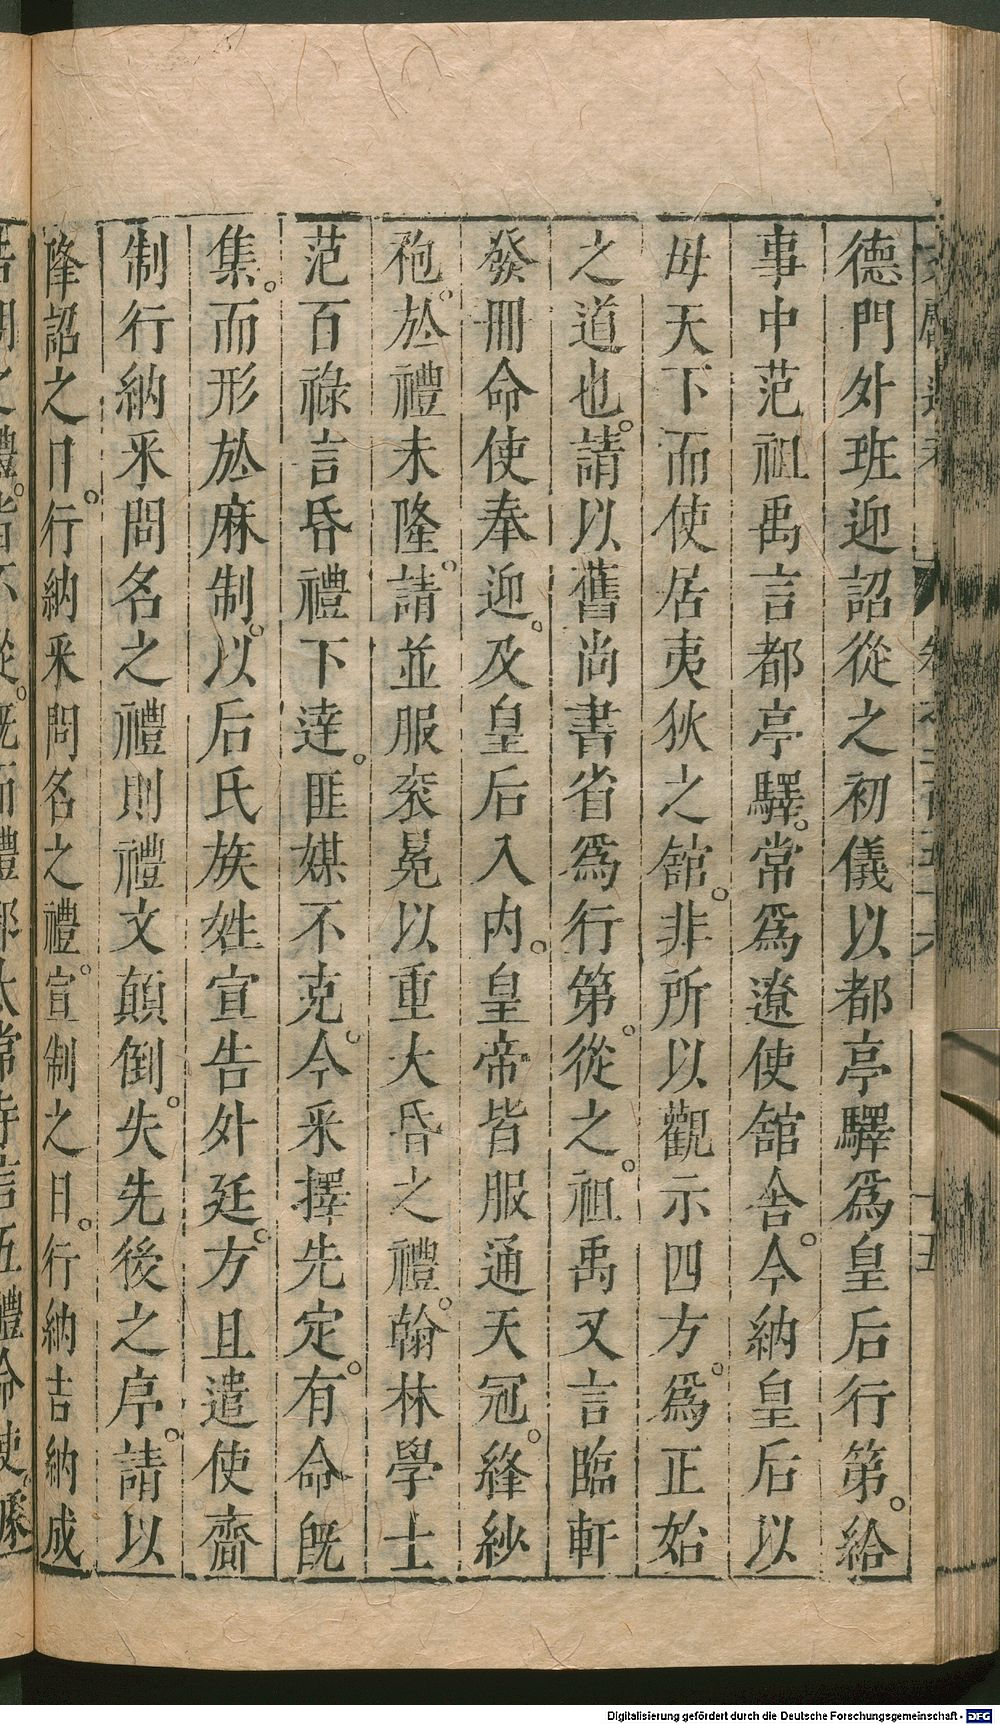 德門外班迎詔從之初儀以都亭驛爲皇后行第。給
事中范祖禹言都亭驛。常爲遼使舘舍。今納皇后以
母天下而使居夷狄之舘。非所以觀示四方。爲正始
之道也。請以舊尚書省爲行第。從之。祖禹又言臨軒
發冊命使奉迎。及皇后入内。皇帝皆服通天冠。絳紗
袍。於禮未隆。請並服衮冕以重大昏之禮。翰林學士
范百祿言昏禮下達。匪媒不克。今釆擇先定。有命旣
集。而形於麻制。以后氏族姓宣告外廷。方且遣使齎
制行納釆問名之禮則禮文顛倒。失先後之序。請以
降詔之日。行納釆問名之禮。宣制之日。行納吉納成
告期之禮。皆不從。旣而禮部太常寺言五禮命使。
Digitalisierung gefördert durch die Deutsche Forschungsgemeinschaft - DFG